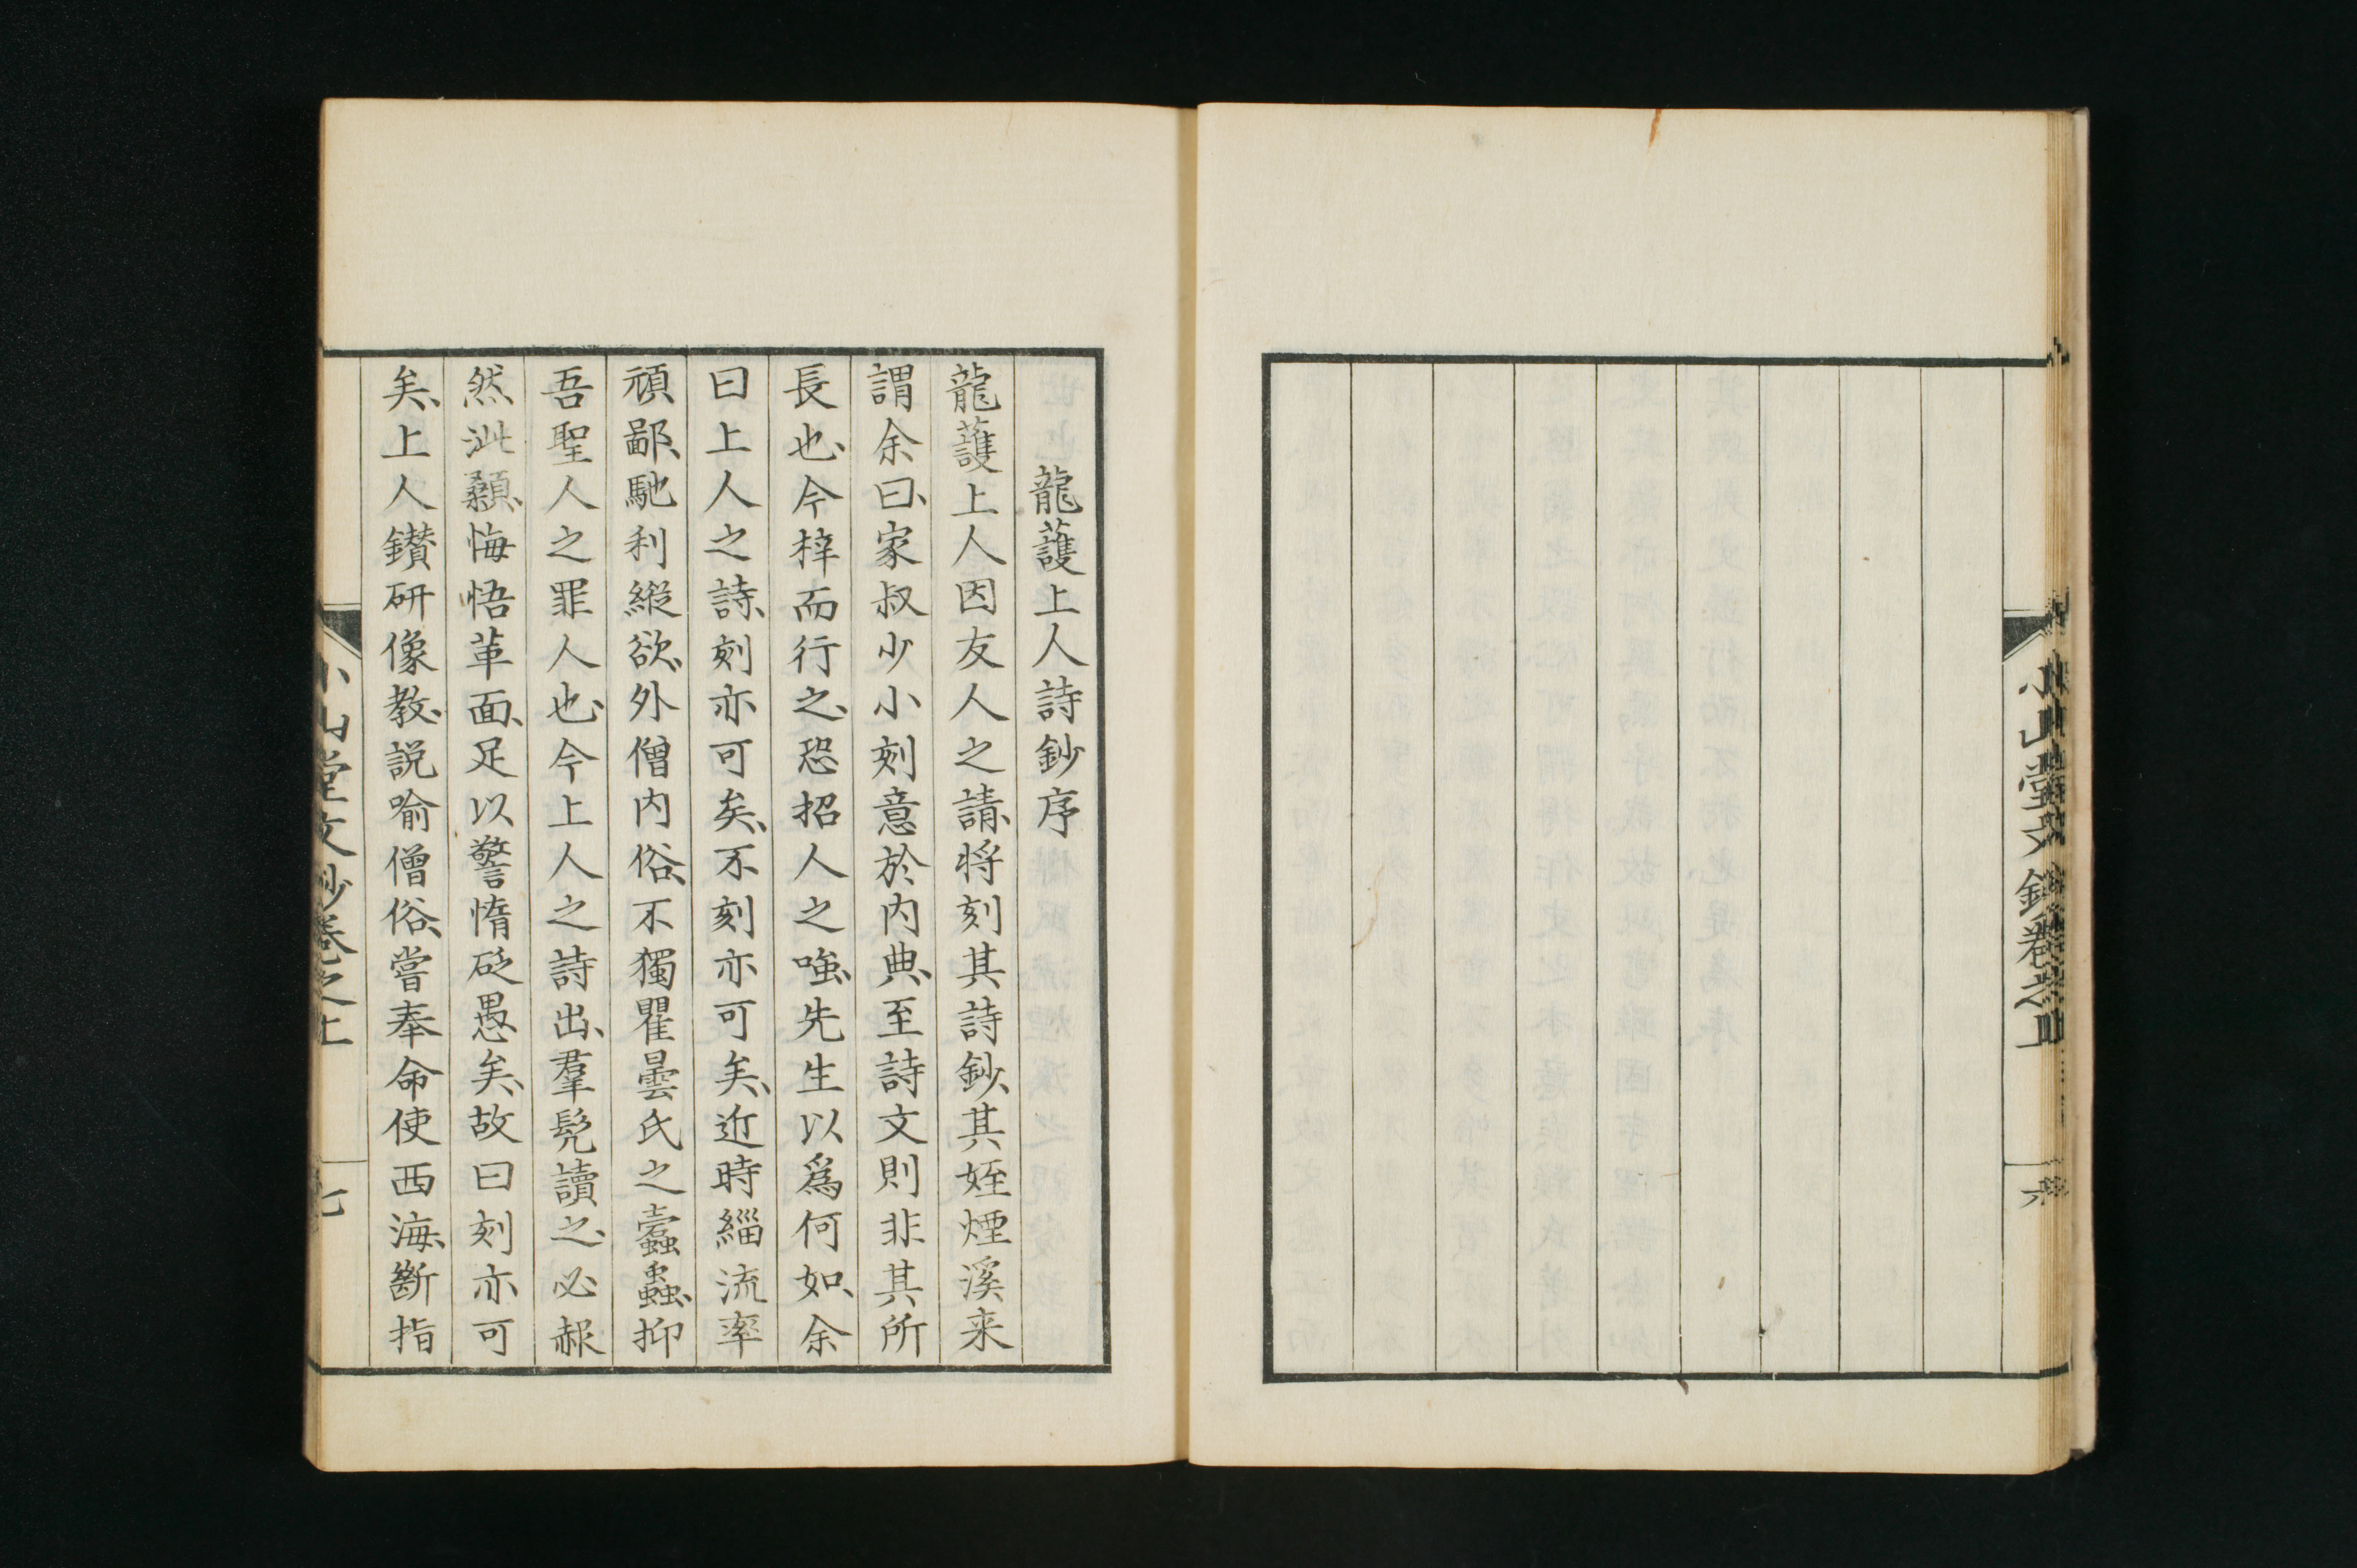 小山堂文鈔卷之上
六
龍護上人詩鈔序
龍護上人因友人之請、將刻其詩鈔、其姪煙溪来
謂余曰、家叔少小刻意於内典、至詩文則非其所
長也、今梓而行之、恐招人之嗤、先生以爲何如、余
曰上人之詩、刻亦可矣、不刻亦可矣、近時緇流率
頑鄙、馳利縦欲、外僧内俗、不獨瞿曇氏之蠧蟲、抑
吾聖人之罪人也、今上人之詩出、羣髡讀之、必赧
然泚顙、悔悟革面、足以警惰砭愚矣、故曰刻亦可
矣、上人鑚研像教、説喻僧俗、嘗奉命使西海、斷指
小山堂文鈔卷之上
七